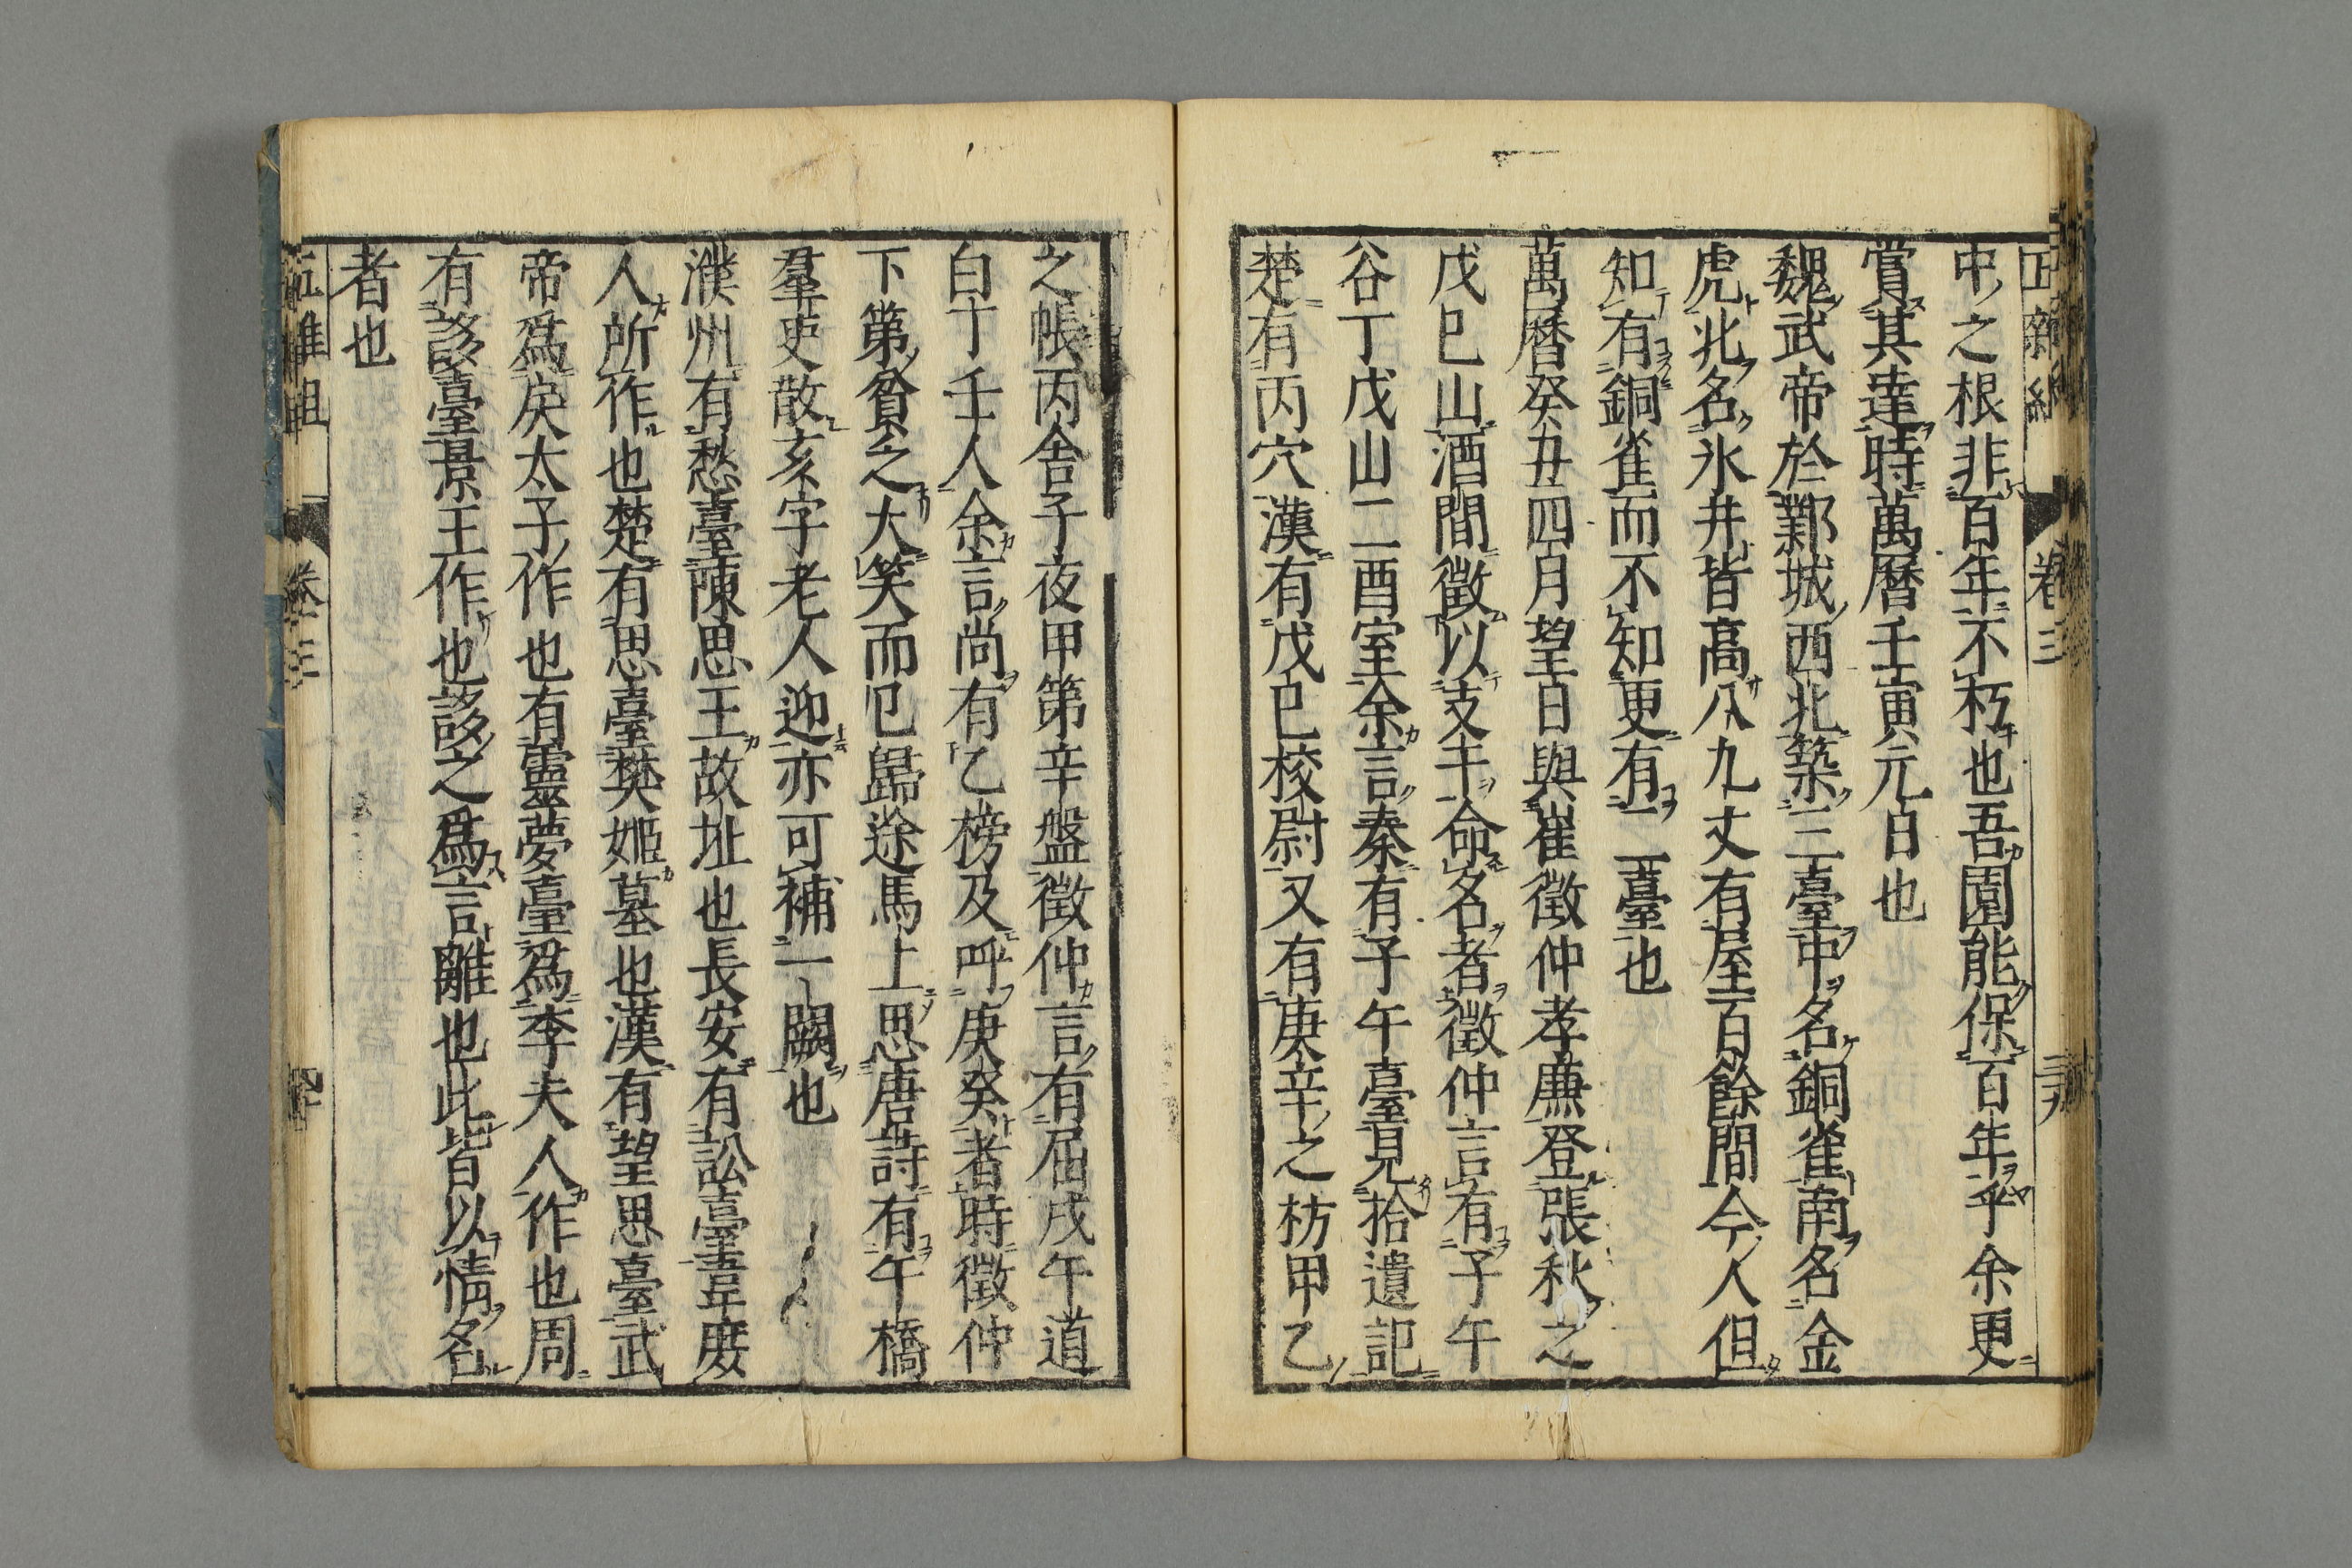 中之根非百年不朽也吾園能保百年乎余更
賞其達時萬曆壬寅元日也
魏武帝於鄴城西北築三臺中名銅雀南名金
虎北名氷井皆高八九丈有屋百餘間今人但
知有銅雀而不知更有二臺也
萬曆癸丑四月望日與崔徵仲孝廉登張秋之
戊巳山酒間徵以支干命名者徵仲言有子午
谷丁戊山二酉室余言秦有子午臺見拾遺記
楚有丙穴漢有戊巳校尉又有庚辛之枋甲乙
之帳丙舎子夜甲第辛盤徵仲言有屈戌午道
白丁壬人余言尚有乙榜及呼庚癸者時徵仲
下第貧乏大笑而已歸途馬上思唐詩有午橋
羣吏散亥字老人迎亦可補一闕也
濮州有愁臺陳思王故址也長安有訟臺韋庶
人所作也楚有思臺樊姬墓也漢有望思臺武
帝爲戾太子作也有靈夢臺爲李夫人作也周
有謻臺景王作也謻之爲言離也此皆以情名
者也
卷三
卷三